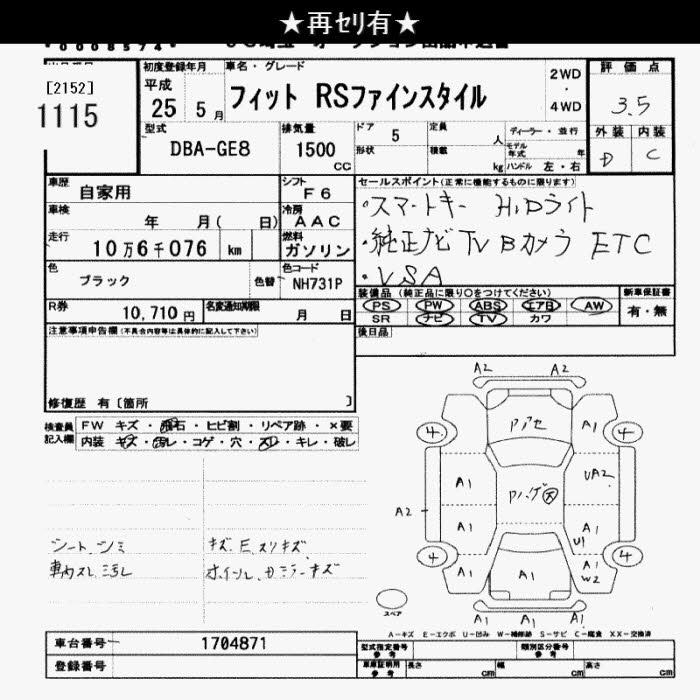 ★再セリ有★
[2152]
1115
初度登録年月
平成
25 5月
車名・グレード
フィット RSファインスタイル
2WD
・
4WD
評価点
3.5
外装 内装
D C
型式
DBA-GE8
排気量
1500
CC
ドア 5
形状
定員 人
積載 kg
ディーラー・並行
モデル年式 年
ハンドル 左・右
車歴
自家用
シフト
F6
車検
年 月( 日)
冷房
AAC
走行
10万6千076 km
燃料
ガソリン
色
ブラック
色替
色コード
NH731P
R券
10,710円
名変通知期限
月 日
セールスポイント(正常に機能するものに限ります)
・スマートキー HiDライト
・純正ナビ TV Bカメラ ETC
・VSA
装備品 (純正品に限り○をつけてください)
PS PW ABS エアB AW
SR ナビ TV カワ
新車保証書
有・無
後日品
注意事項申告欄(不具合内容等は具体的に記入して下さい)
修復歴 有〔箇所 〕
検査員記入欄
FW キズ・飛石・ヒビ割・リペア跡・×要
内装 キズ・汚レ・コゲ・穴・スレ・キレ・破レ
シート、シミ
車内スレ、汚レ
キズ、E、スリキズ、
ホイール、カミラーキズ
A2 A2
4 A1 4
A1 UA2
A2 A1 A1
U1
4 A1 A1 4
A1 W2
A1 A1 A1
スペア
A-キズ E-エクボ U-凹み W-補修跡 S-サビ C-腐食 XX-交換済
車台番号 1704871
登録番号
型式指定番号 参考
類別区分番号 参考
車庫証明用 参考
長さ cm 幅 cm 高さ cm